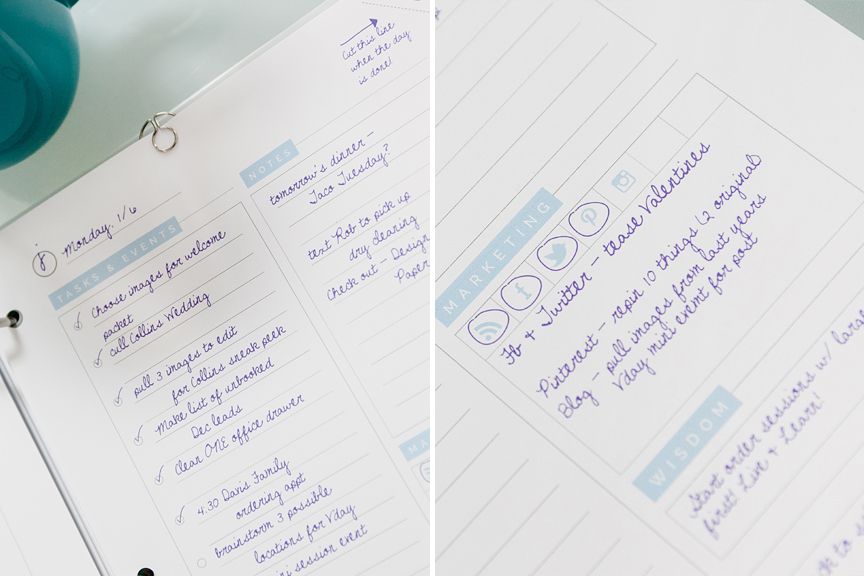 Cut this line
when the day
is done!
Monday, 1/6
TASKS & EVENTS
choose images for welcome
packet
cull Collins Wedding
pull 3 images to edit
for Collins sneak peek
Make list of unbooked
Dec leads
clean ONE office drawer
4:30 Davis Family
ordering appt
brainstorm 3 possible
locations for Vday
mini session event
NOTES
tomorrow's dinner -
Taco Tuesday?
text Rob to pick up
dry cleaning
Check out - Design
Paper
MA
MARKETING
Fb + Twitter - tease Valentines
Pinterest - repin 10 things (2 original
Blog - pull images from last years
Vday mini event for post
WISDOM
Start order sessions w/ large
first! Live + Learn!